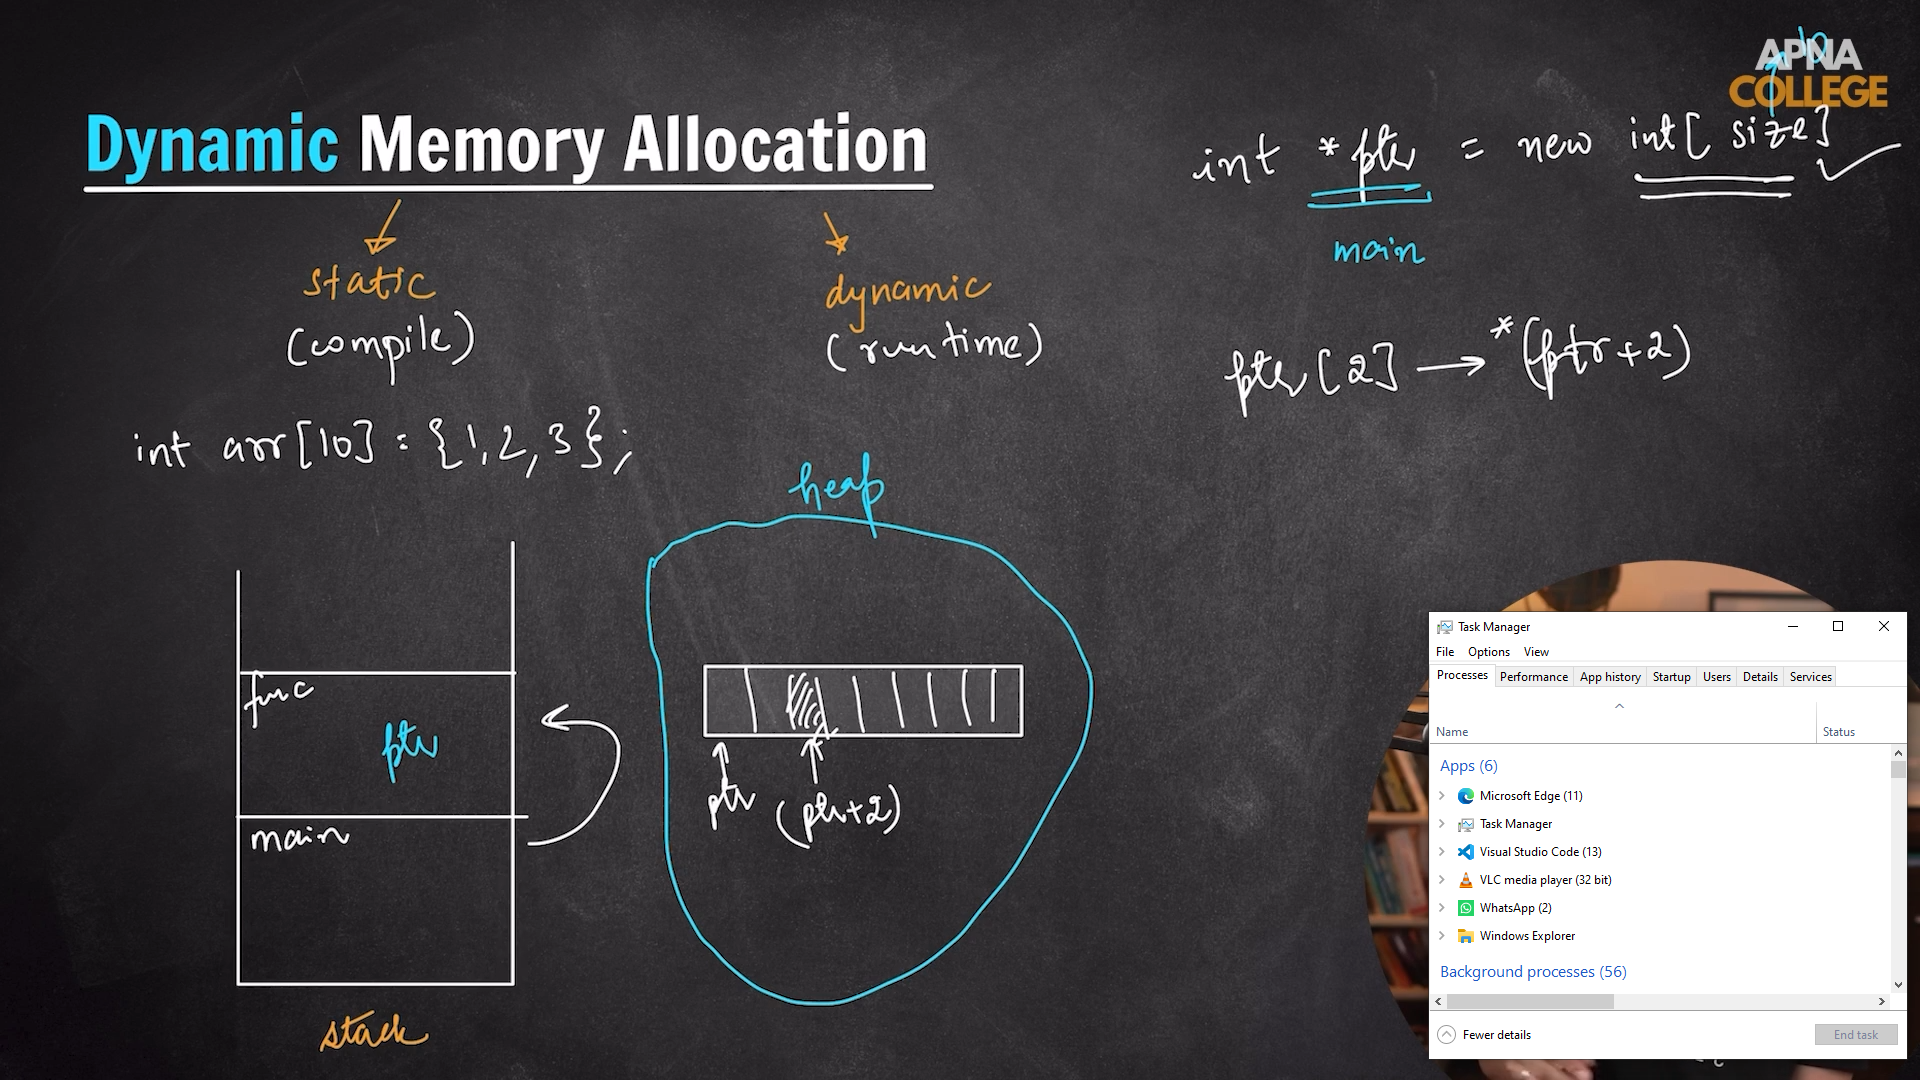 APNA
COLLEGE
10
Dynamic Memory Allocation
int *ptr = new int[size]
main
static
(compile)
dynamic
(runtime)
ptr[2] → *(ptr+2)
int arr[10] = {1,2,3};
heap
func
ptr
main
stack
ptr
(ptr+2)
Task Manager
File Options View
Processes Performance App history Startup Users Details Services
Name Status
Apps (6)
Microsoft Edge (11)
Task Manager
Visual Studio Code (13)
VLC media player (32 bit)
WhatsApp (2)
Windows Explorer
Background processes (56)
Fewer details End task